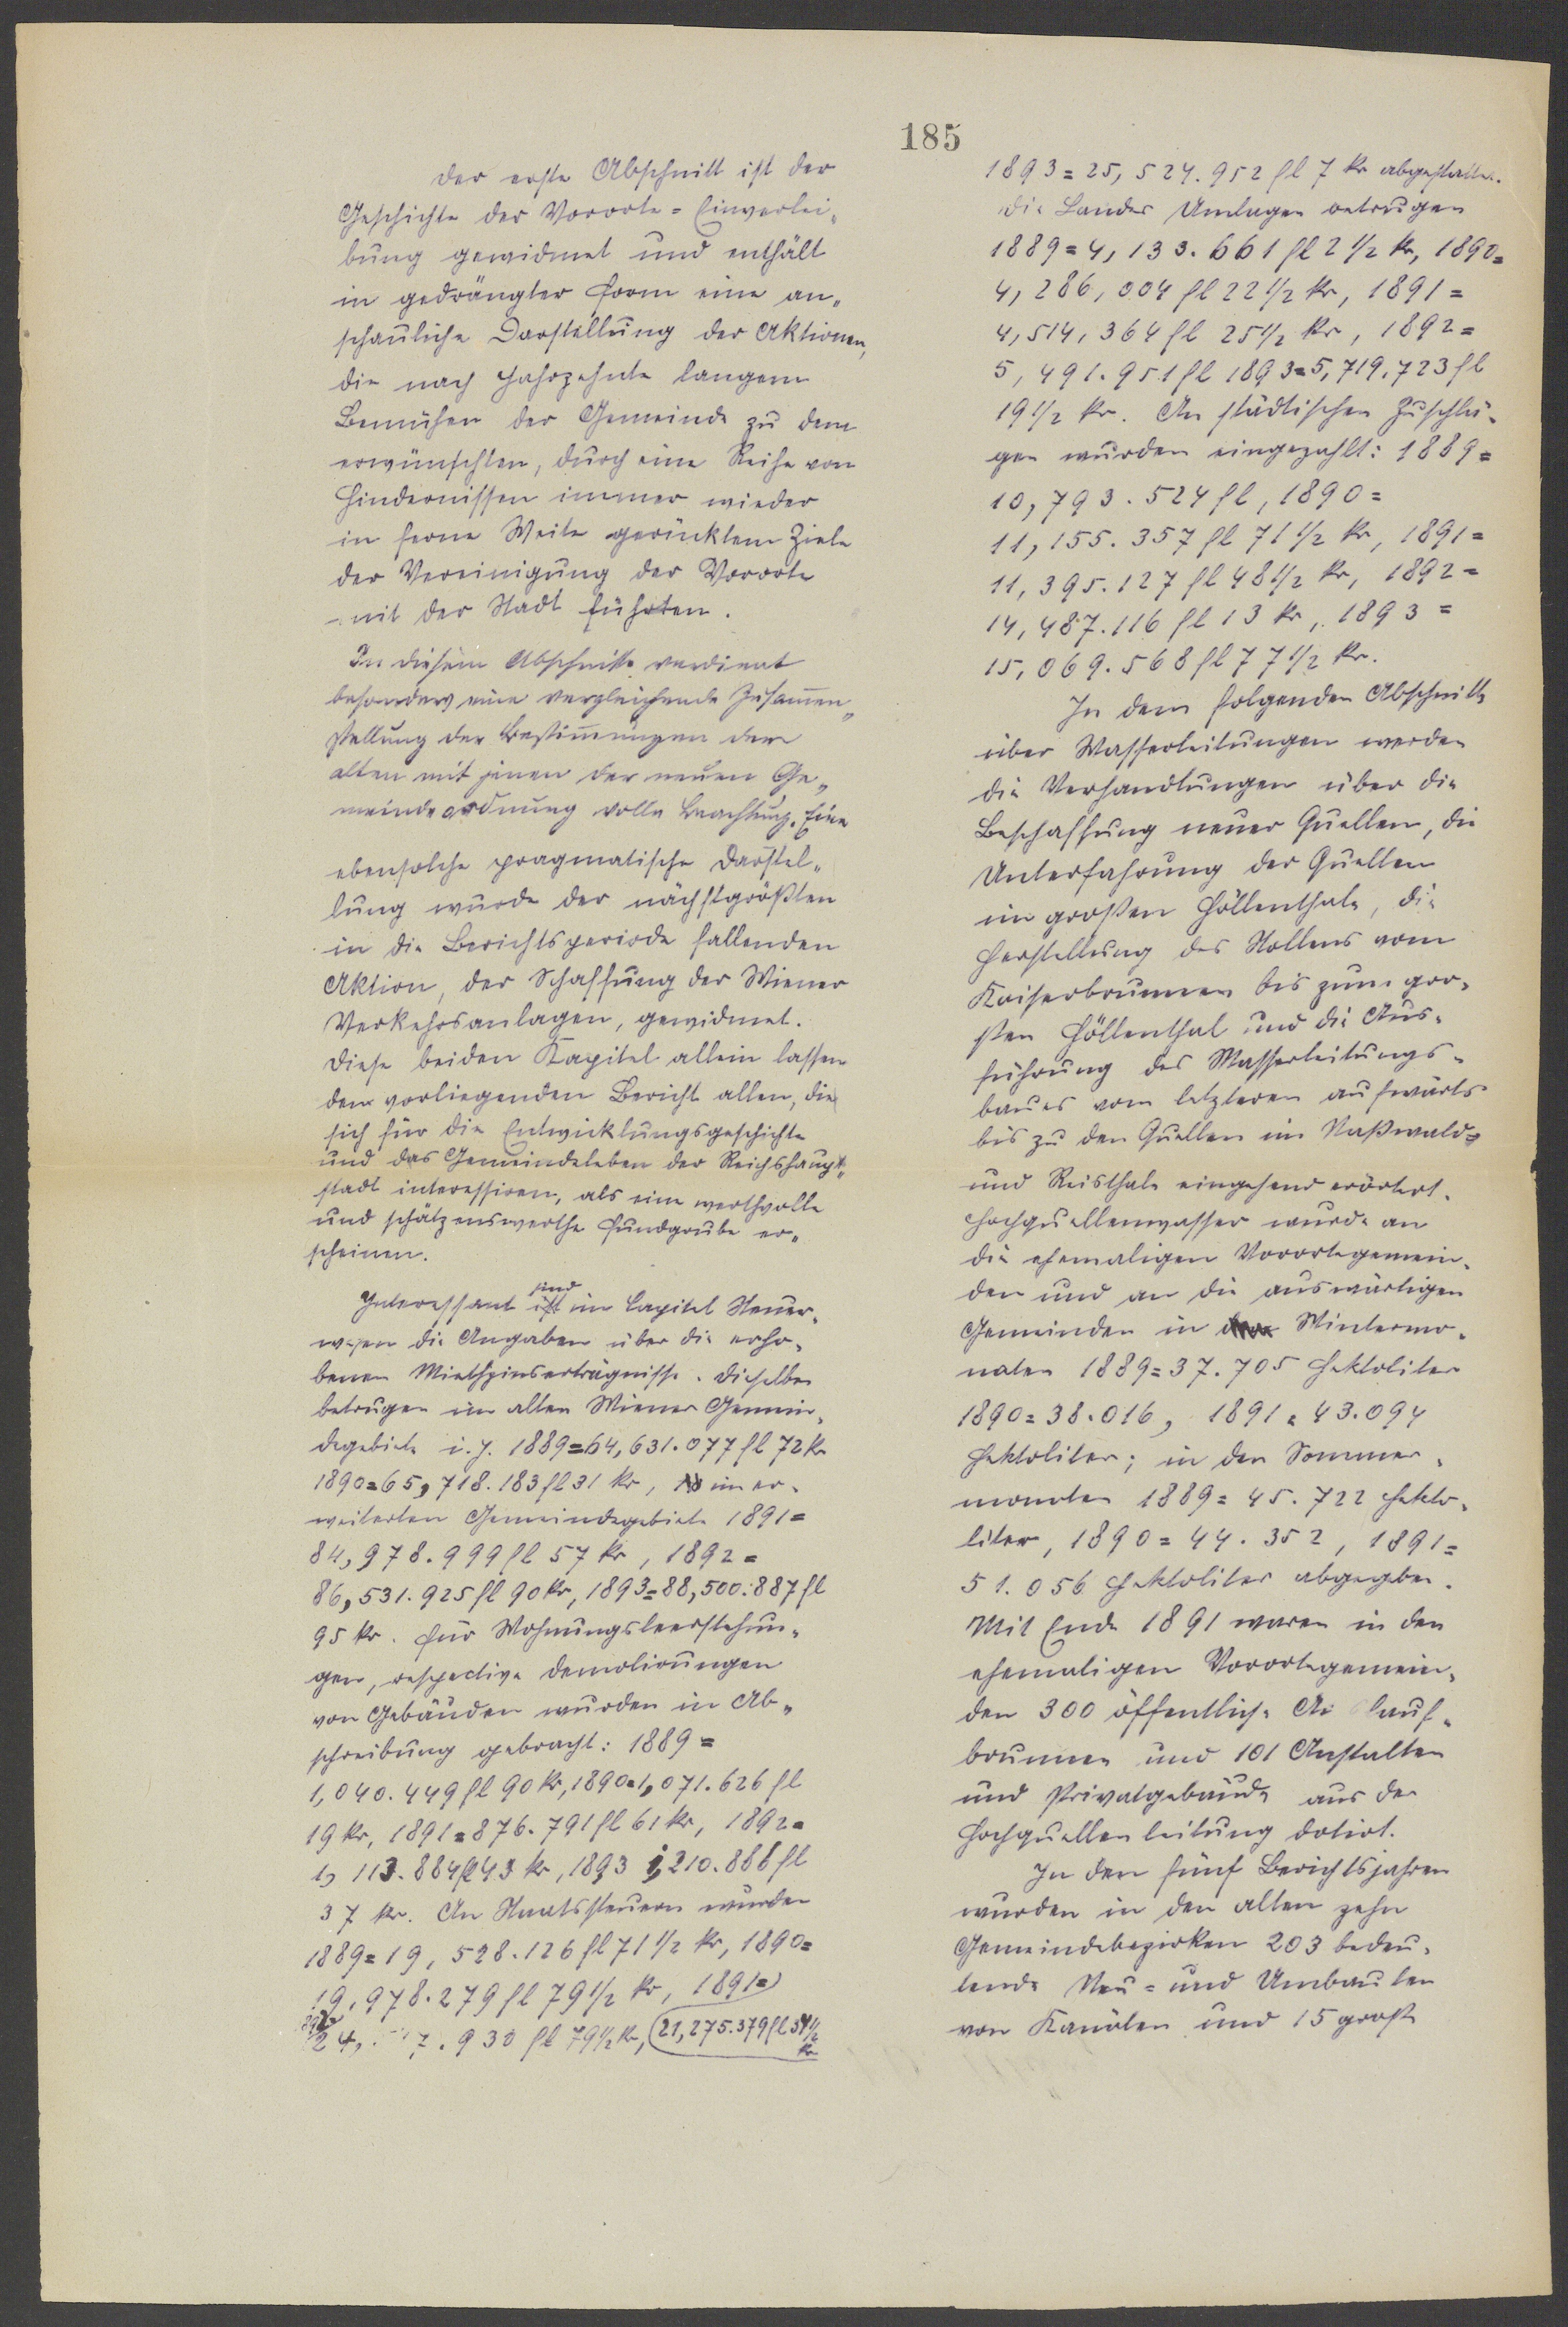 185
Der erste Abschnitt ist der
Geschichte der Vororte=Einverlei„
bung gewidmet und enthält
in gedrängter Form eine an„
schauliche Darstellung der Aktionen,
die nach Jahrzehnte langem
Bemühen der Gemeinde zu dem
erwünschten, durch eine Reihe von
Hindernissen immer wieder
in ferne Weite gerücktem Ziele
der Vereinigung der Vororte
mit der Stadt führten.
In diesem Abschnitte verdient
besonders eine vergleichende Zusam̅en„
stellung der Bestim̅ungen der
alten mit jenen der neuen Ge„
meindeordnung volle Beachtung. Eine
ebensolche pragmatische Darstel„
lung wurde der nächstgrößten
in die Berichtsperiode fallenden
Aktion, der Schaffung der Wiener
Verkehrsanlagen, gewidmet.
Diese beiden Kapitel allein lassen
den vorliegenden Bericht allen, die
sich für die Entwicklungsgeschichte
und das Gemeindeleben der Reichshaupt„
stadt interessiren, als eine werthvolle
und schätzenswerthe Fundgrube er„
scheinen.
Interessant sind im Capitel Steuer„
wesen die Angaben über die erho„
benen Miethzinserträgnisse. Dieselben
betrugen im alten Wiener Gemein„
degebiete i. J. 1889=64,631.077 fl 72 kr
1890=65,718.183 fl 31 kr, im er„
weiterten Gemeindegebiete 1891=
84,978.999 fl 57 kr, 1892=
86,531.925 fl 90 kr, 1893=88,500.887 fl
95 kr. Für Wohnungsleerstehun„
gen, respective Demolirungen
von Gebäuden wurden in Ab„
schreibung gebracht: 1889=
1,040.449 fl 90 kr, 1890=1,071.626 fl
19 kr, 1891=876.791 fl 61 kr, 1892=
1,113.884 fl 43 kr, 1893 1,210.888 fl
37 kr. An Staatssteuern wurden
1889=19,528.126 fl 71 1/2 kr, 1890=
19,978.279 fl 79 1/2 kr, 1891=
21,275.379 fl 54 1/2 kr
7.930 fl 79 1/2 kr,
1893=25,524.952 fl 7 kr abgestattet.
Die Landes Umlagen betrugen
1889=4,133.661 fl 2 1/2 kr, 1890=
4,286,004 fl 22 1/2 kr, 1891=
4,514,364 fl 25 1/2 kr, 1892=
5,491.951 fl 1893=5,719.723 fl
19 1/2 kr. An städtischen Zuschlä„
gen wurden eingezahlt: 1889=
10,793.524 fl, 1890=
11,155.357 fl 71 1/2 kr, 1891=
11,395.127 fl 48 1/2 kr, 1892=
14,487.116 fl 13 kr, 1893=
15,069.568 fl 77 1/2 kr.
In dem folgenden Abschnitte
über Wasserleitungen werden
die Verhandlungen über die
Beschaffung neuer Quellen, die
Unterfahrung der Quellen
im großen Höllenthale, die
Herstellung des Stollens vom
Kaiserbrunnen bis zum gro„
ßen Höllenthal und die Aus„
führung des Wasserleitungs„
baues vom letzteren aufwärts
bis zu den Quellen im Naßwald=
und Reisthale eingehend erörtert.
Hochquellenwasser wurde an
die ehemaligen Vorortegemein„
den und an die auswärtigen
Gemeinden in Wintermo„
naten 1889=37.705 Hektoliter
1890=38.016, 1891=43.094
Hektoliter; in den Sommer„
monaten 1889=45.722 Hekto„
liter, 1890=44.352, 1891=
51.056 Hektoliter abgegeben.
Mit Ende 1891 waren in den
ehemaligen Vorortegemein„
den 300 öffentliche Auslauf„
brunnen und 101 Anstalten
und Privatgebäude aus der
Hochquellenleitung dotirt.
In den fünf Berichtsjahren
wurden in den alten zehn
Gemeindebezirken 203 bedeu„
tende Neu= und Umbauten
von Kanälen und 15 große